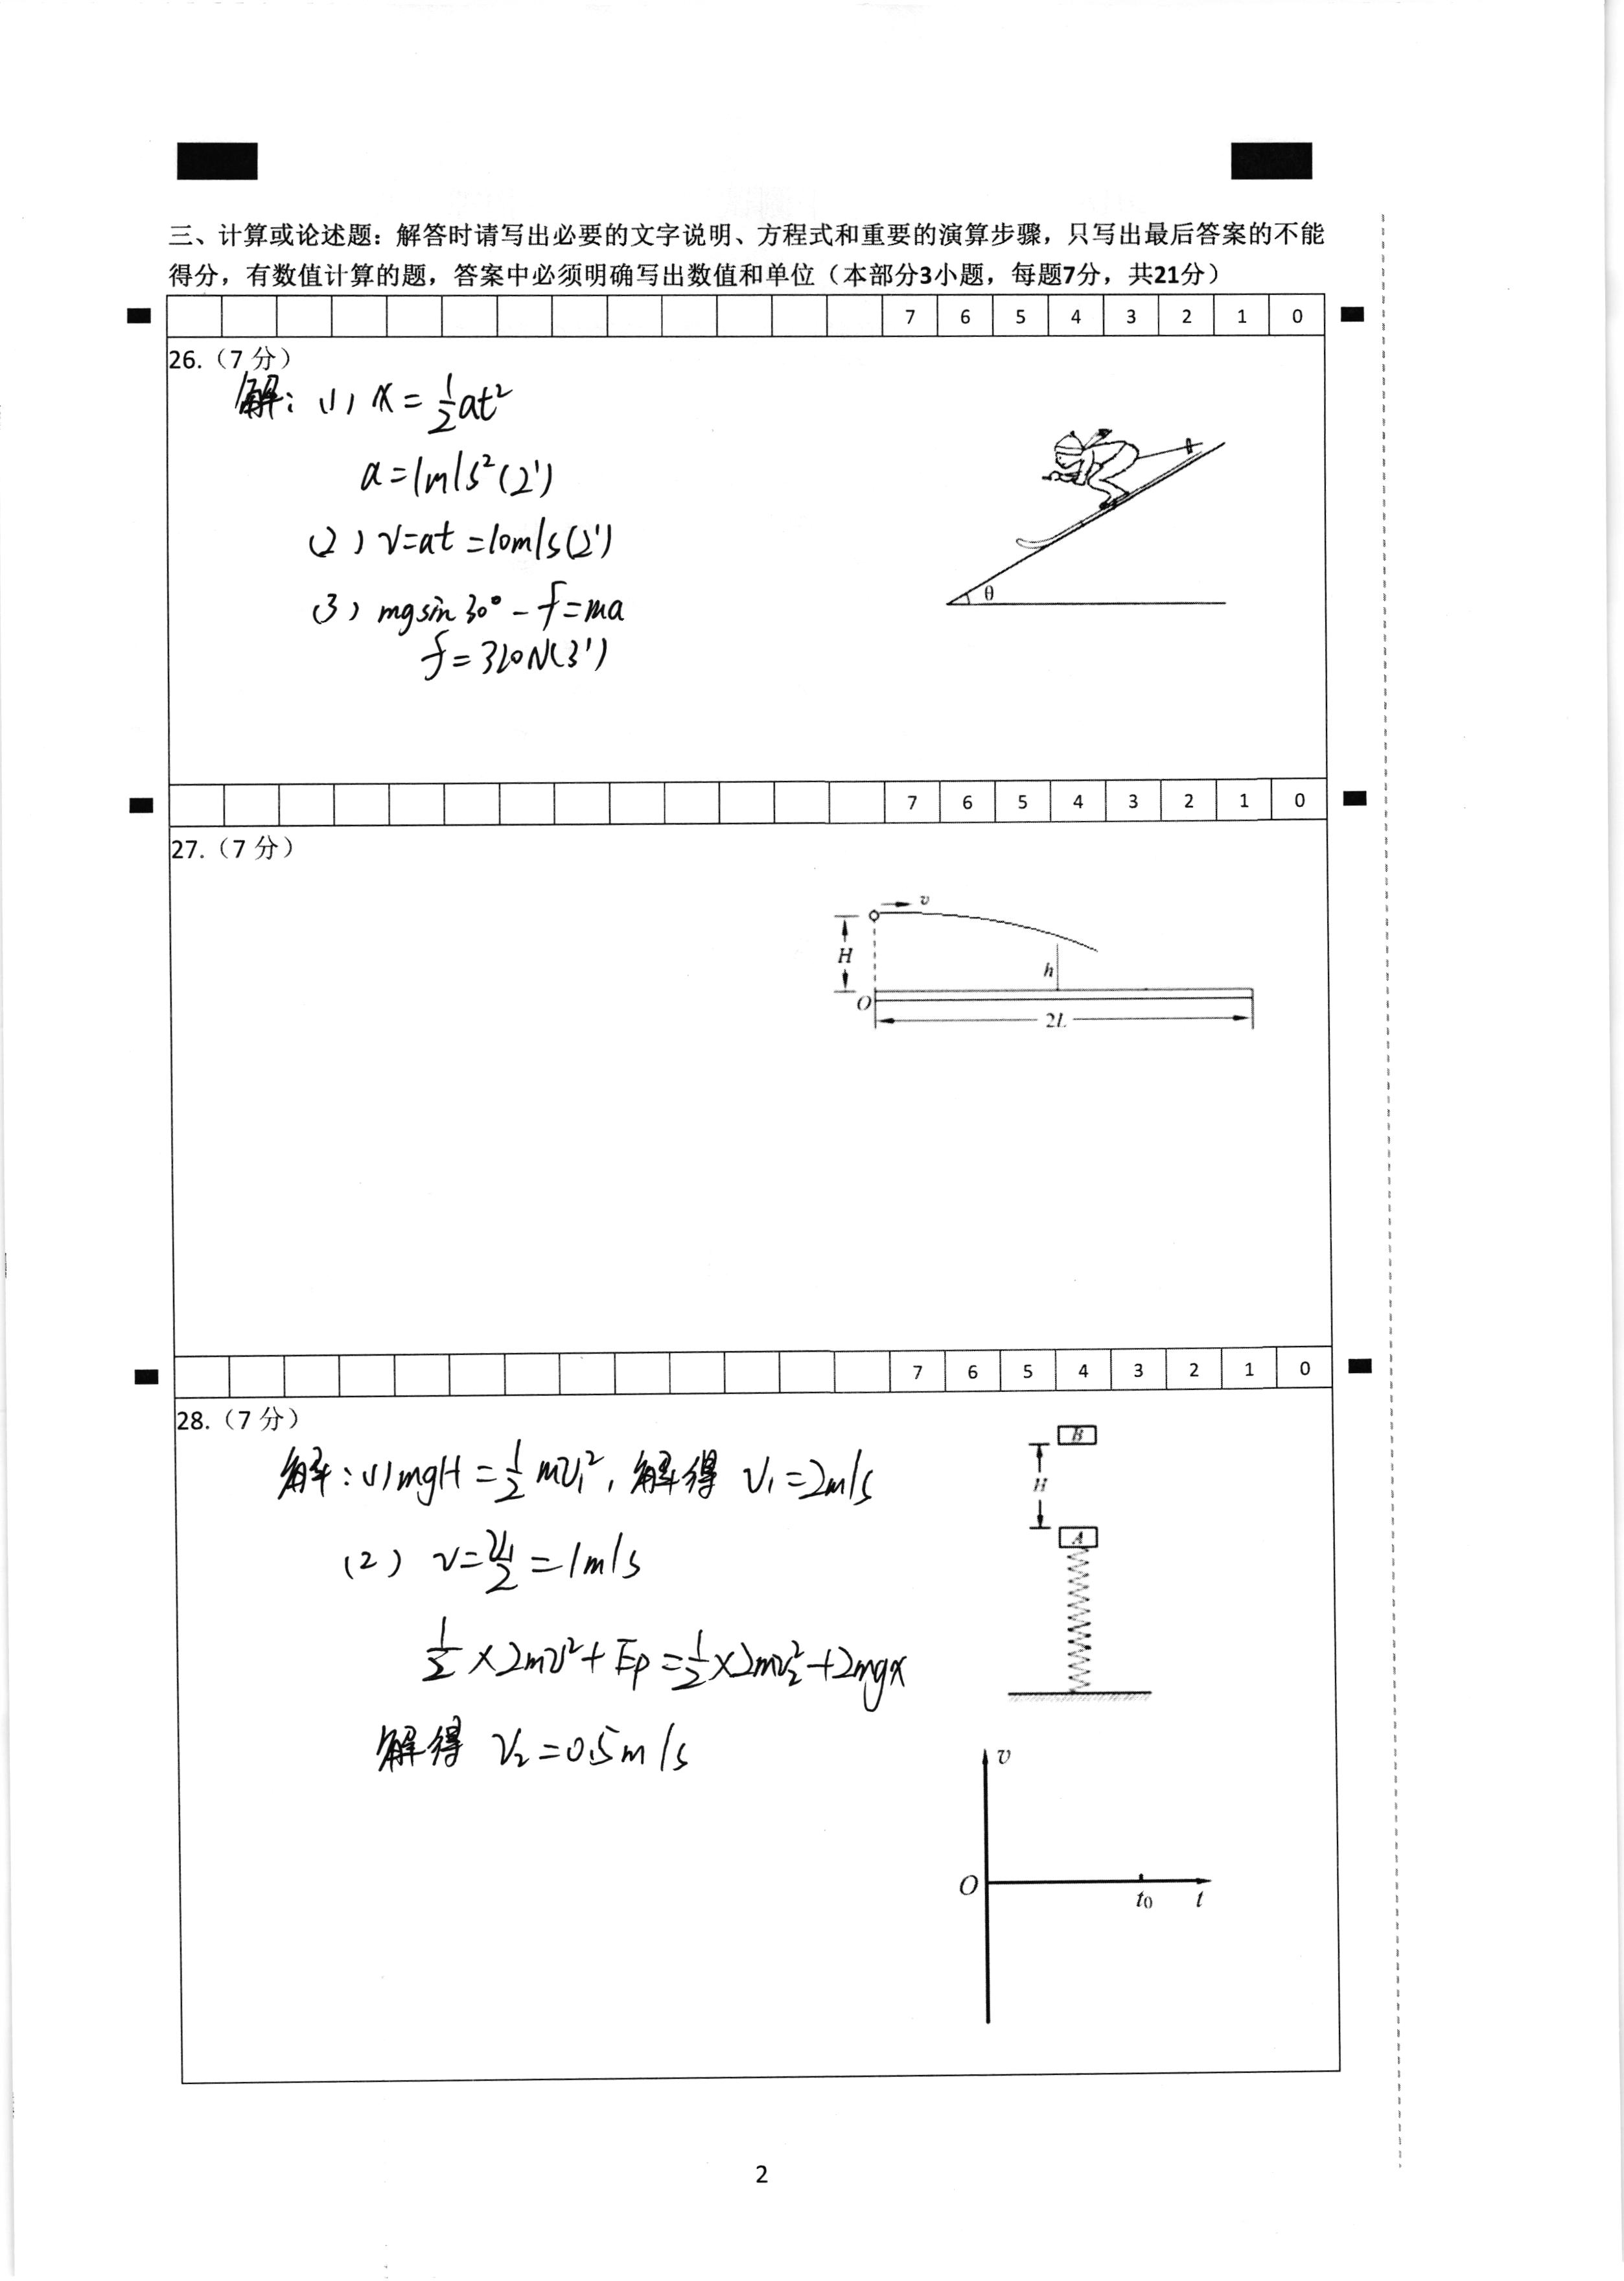 三、计算或论述题：解答时请写出必要的文字说明、方程式和重要的演算步骤，只写出最后答案的不能
得分，有数值计算的题，答案中必须明确写出数值和单位（本部分3小题，每题7分，共21分）
7 6 5 4 3 2 1 0
26.（7 分）
解：(1) x = 1/2 at²
a = 1m/s² (2')
(2) v=at =10m/s (2')
(3) mgsin30° - f=ma
f = 320N (3')
θ
7 6 5 4 3 2 1 0
27.（7 分）
v
H
h
O
2L
7 6 5 4 3 2 1 0
28.（7 分）
解：(1) mgH = 1/2 mv₁², 解得 v₁=2m/s
(2) v = v₁/2 = 1m/s
1/2 ×2mv² + Ep = 1/2 ×2mv₂² + 2mgx
解得 v₂ = 0.5m/s
B
H
A
v
O
t₀ t
2